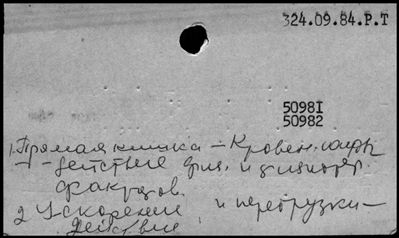 324.09.84.Р.Т
5098I
50982
1. Прямая кишка – Кровен.
– " – действие физ. и
факторов.
2 Ускорение и перегрузки –
действие